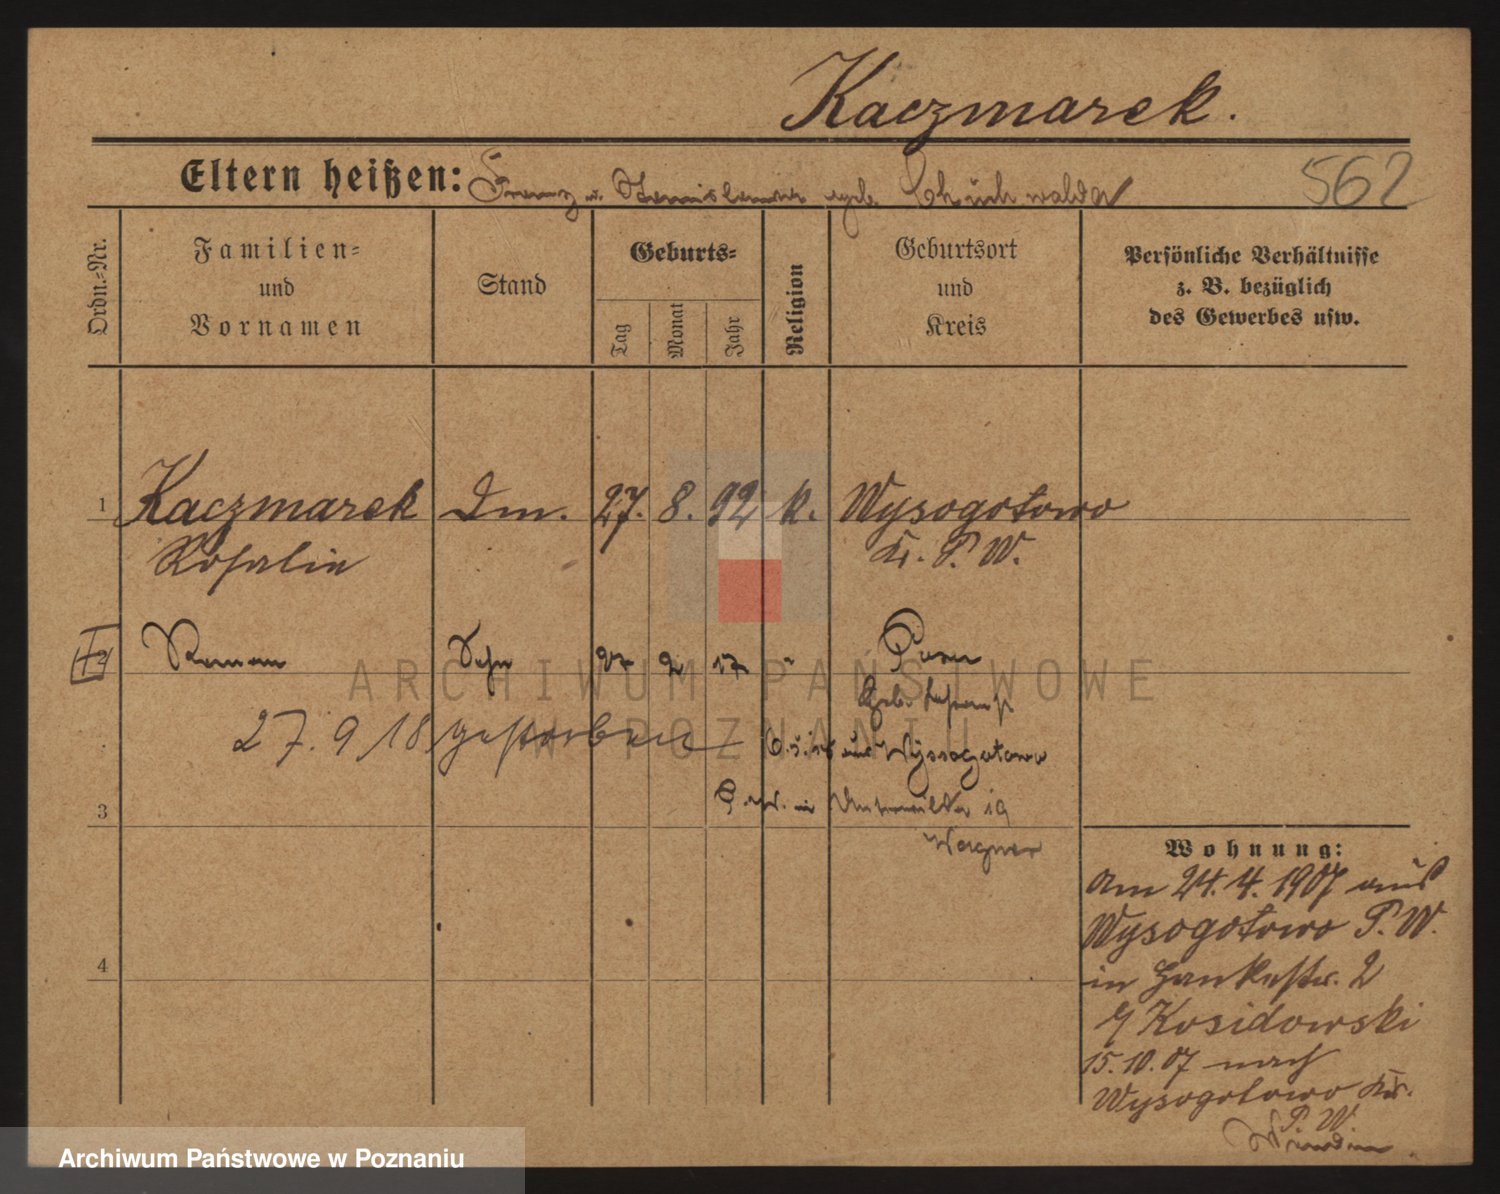 Kaczmarek.
Eltern heißen: Franz u. Stanislawa geb.
562
Ordn.-Nr.
Familien-
und
Vornamen
Stand
Geburts-
Tag
Monat
Jahr
Religion
Geburtsort
und
Kreis
Persönliche Verhältnisse
z. B. bezüglich
des Gewerbes usw.
1 Kaczmarek Dm. 27. 8. 92 k. Wysogotowo
Rosalie Kr. P. W.
2 Roman Sohn 27 2 17 " Posen
27.9.18 gestorben aus Wysogotowo
P.W. in 19
3 Wagner
4
Wohnung:
Am 24.4.1907 aus
Wysogotowo P. W.
in Hankestr. 2
Kosidowski
15.10.07 nach
Wysogotowo Kr.
P. W.
ARCHIWUM PAŃSTWOWE
W POZNANIU
Archiwum Państwowe w Poznaniu